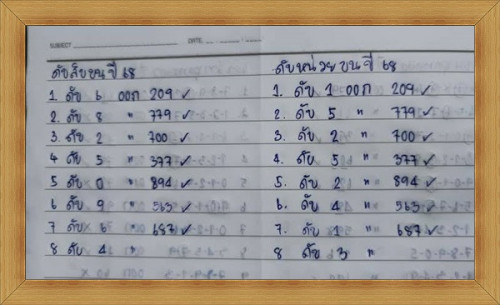 SUBJECT
DATE
ดับสิบบนปี 68
1. ดับ 6 ออก 209 ✓
2. ดับ 8 " 779 ✓
3. ดับ 2 " 700 ✓
4 ดับ 5 " 377 ✓
5 ดับ 0 " 894 ✓
6 ดับ 9 " 563 ✓
7 ดับ 6 " 687 ✓
8 ดับ 4 "
ดับหน่วยบนปี 68
1. ดับ 1 ออก 209 ✓
2. ดับ 5 " 779 ✓
3. ดับ 2 " 700 ✓
4. ดับ 5 " 377 ✓
5. ดับ 2 " 894 ✓
6. ดับ 4 " 563 ✓
7. ดับ 1 " 687 ✓
8 ดับ 3 "